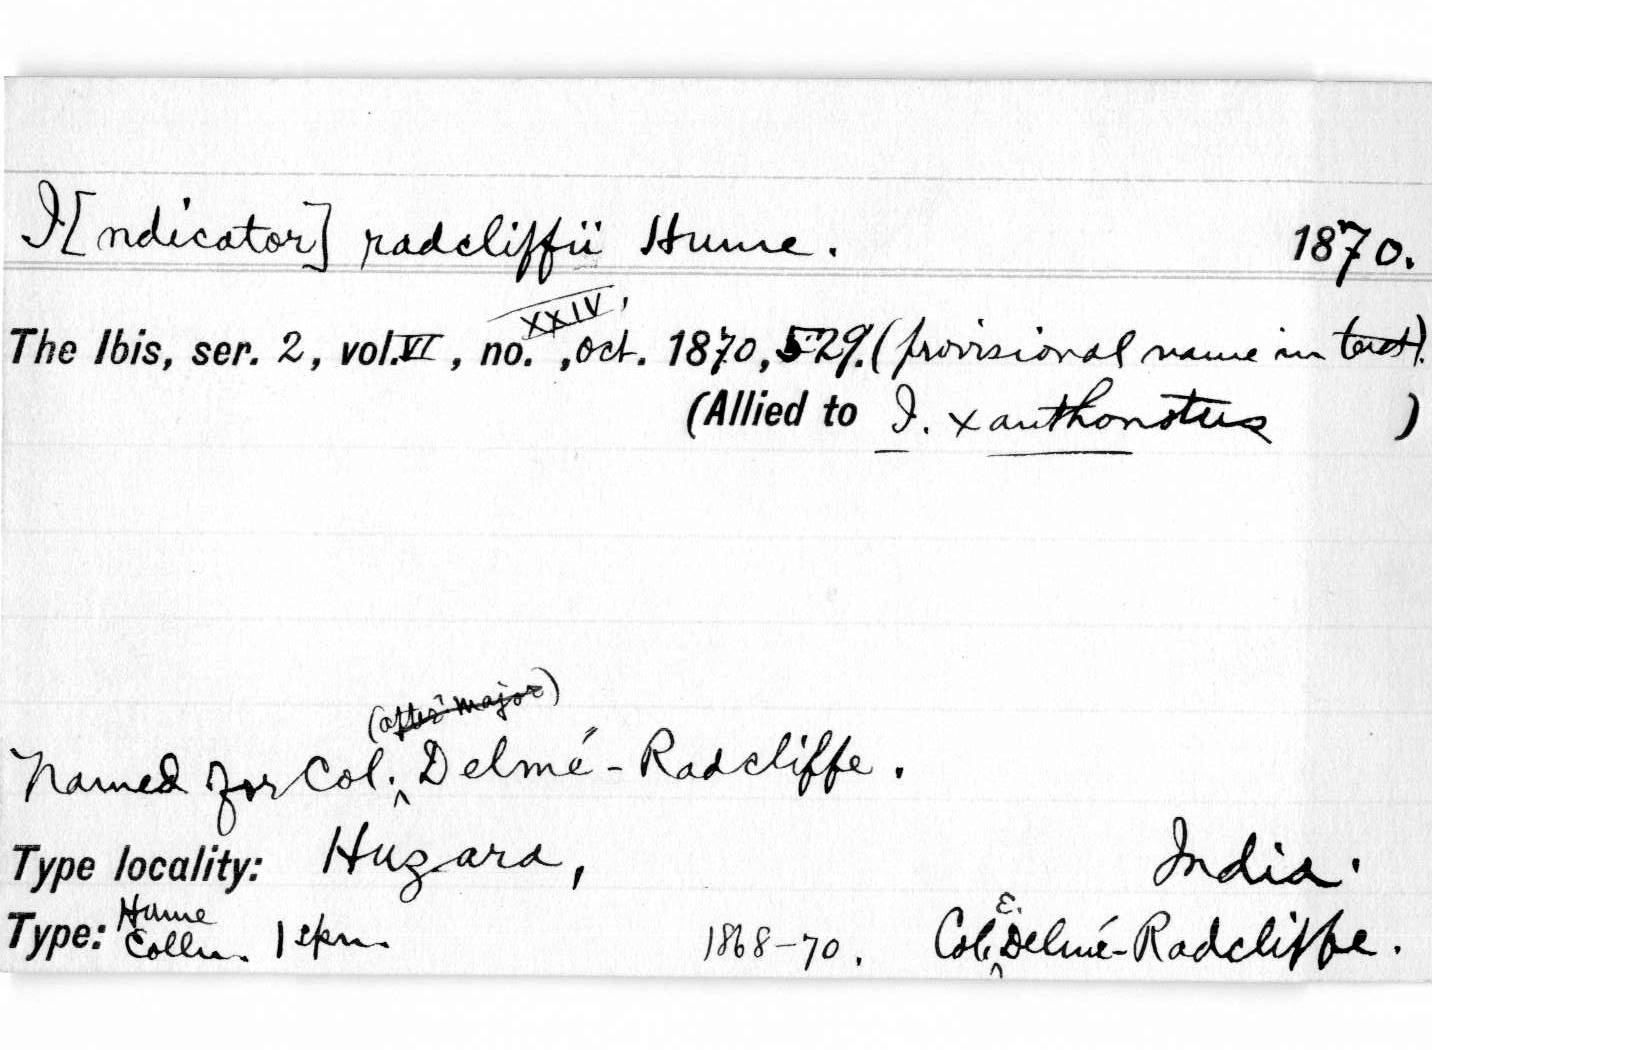 I[ndicator] radcliffii Hume. 1870.
The Ibis, ser. 2, vol. VI, no. XXIV, oct. 1870, 529. (provisional name in text).
(Allied to I. xanthonotus )
(after major)
Named for Col. Delmé-Radcliffe.
Type locality: Huzara, India.
Type: Hume Colln. 1 spm. 1868-70. Col. E. Delmé-Radcliffe.